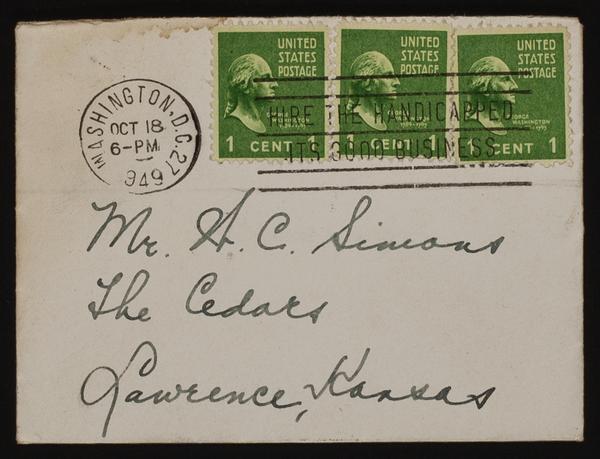 WASHINGTON, D.C. 27
OCT 18
6-PM
1949
UNITED STATES POSTAGE
GEORGE WASHINGTON
1 CENT 1
UNITED STATES POSTAGE
GEORGE WASHINGTON
1 CENT 1
UNITED STATES POSTAGE
GEORGE WASHINGTON
1 CENT 1
HIRE THE HANDICAPPED
ITS GOOD BUSINESS
Mr. H. C. Simons
The Cedars
Lawrence, Kansas